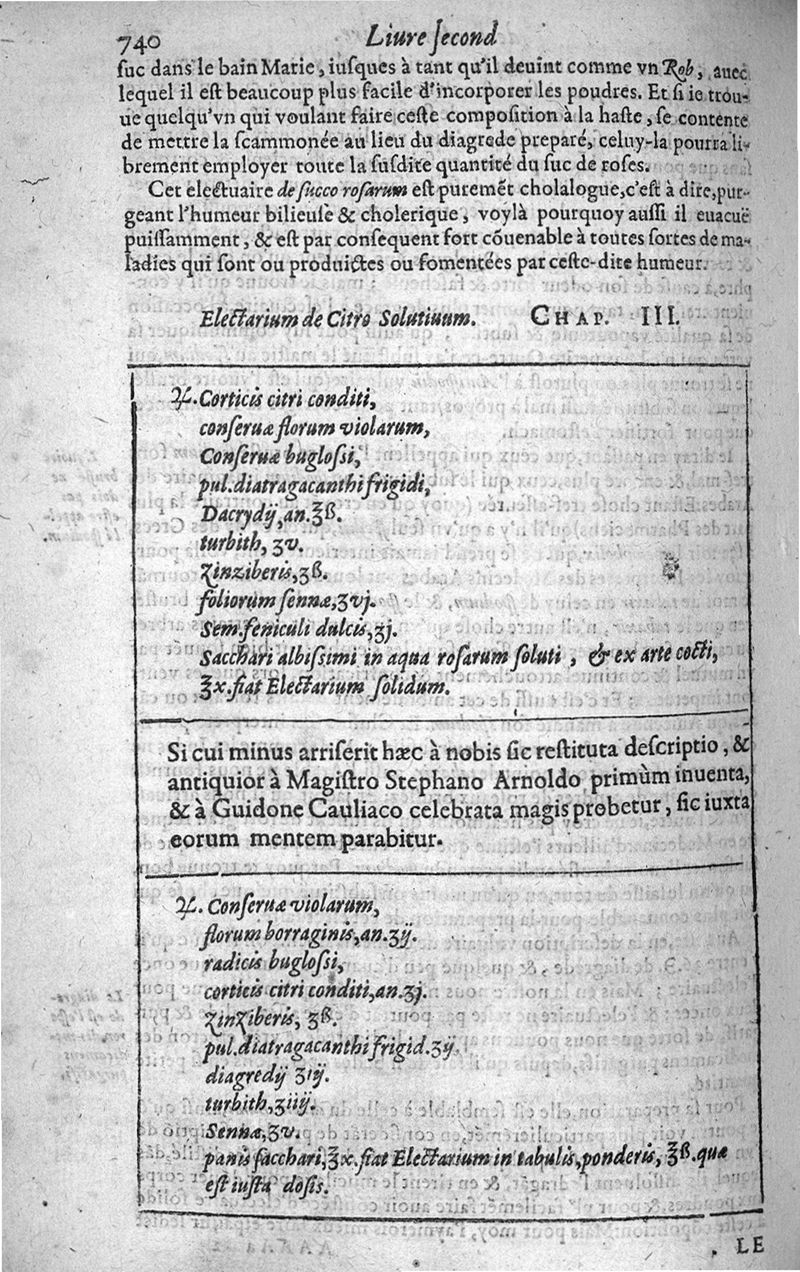 740 Liure second
suc dans le bain Marie, iusques à tant qu'il deuint comme vn Rob, auec
lequel il est beaucoup plus facile d'incorporer les poudres. Et si ie trou-
ue quelqu'vn qui voulant faire ceste composition à la haste, se contente
de mettre la scammonée au lieu du diagrede preparé, celuy-la pourra li-
brement employer toute la susdite quantité du suc de roses.
Cet electuaire de succo rosarum est puremēt cholalogue, c'est à dire, pur-
geant l'humeur bilieuse & cholerique, voylà pourquoy aussi il euacuë
puissamment, & est par consequent fort cōuenable à toutes sortes de ma-
ladies qui sont ou produictes ou fomentées par ceste-dite humeur.
Electarium de Citro Solutiuum. CHAP. III.
♃. Corticis citri conditi,
conseruæ florum violarum,
Conseruæ buglossi,
pul. diatragacanthi frigidi,
Dacrydij, an. ℥ß.
turbith, ʒv.
Zinziberis, ʒß.
foliorum sennæ, ʒvj.
Sem. feniculi dulcis, ʒj.
Sacchari albissimi in aqua rosarum soluti, & ex arte cocti,
℥x. fiat Electarium solidum.
Si cui minus arriserit hæc à nobis sic restituta descriptio, &
antiquior à Magistro Stephano Arnoldo primùm inuenta,
& à Guidone Cauliaco celebrata magis probetur, sic iuxta
eorum mentem parabitur.
♃. Conseruæ violarum,
florum borraginis, an. ʒij.
radicis buglossi,
corticis citri conditi, an. ʒj.
Zinziberis, ʒß.
pul. diatragacanthi frigid. ʒij.
diagredij ʒiij.
turbith, ʒiiij.
Sennæ, ʒv.
panis sacchari, ℥x. fiat Electarium in tabulis, ponderis, ℥ß. quæ
est iusta dosis.
LE